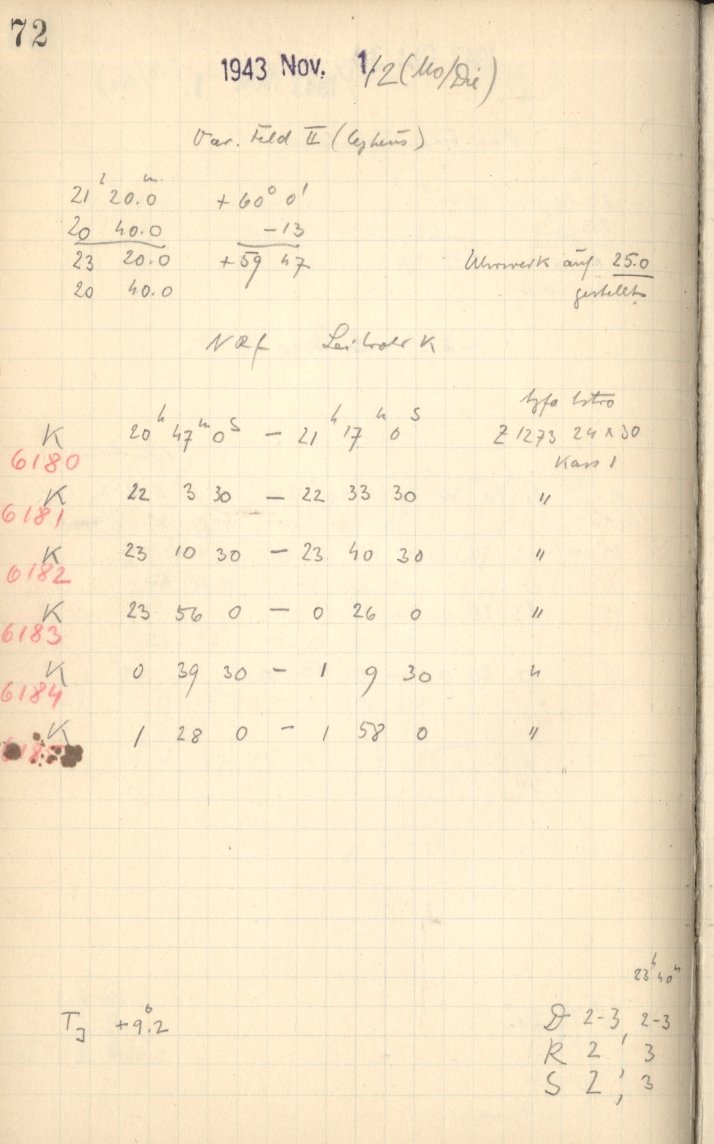 72
1943 Nov. 1/2 (Mo/Die)
Var. Feld II (Cepheus)
21ʰ 20.0ᵐ +60° 0'
20 40.0 -13
23 20.0 +59 47
20 40.0
Uhrwerk auf 25.0
gestellt
Leitrohr K
Agfa Astro
K 20ʰ 47ᵐ 0ˢ – 21ʰ 17ᵐ 0ˢ Z 1273 24 x 30
6180 Kass 1
K 22 3 30 – 22 33 30 "
6181
K 23 10 30 – 23 40 30 "
6182
K 23 56 0 – 0 26 0 "
6183
K 0 39 30 – 1 9 30 "
6184
K 1 28 0 – 1 58 0 "
23ʰ40ᵐ
T +9°.2 D 2-3, 2-3
R 2 ; 3
S 2 ; 3